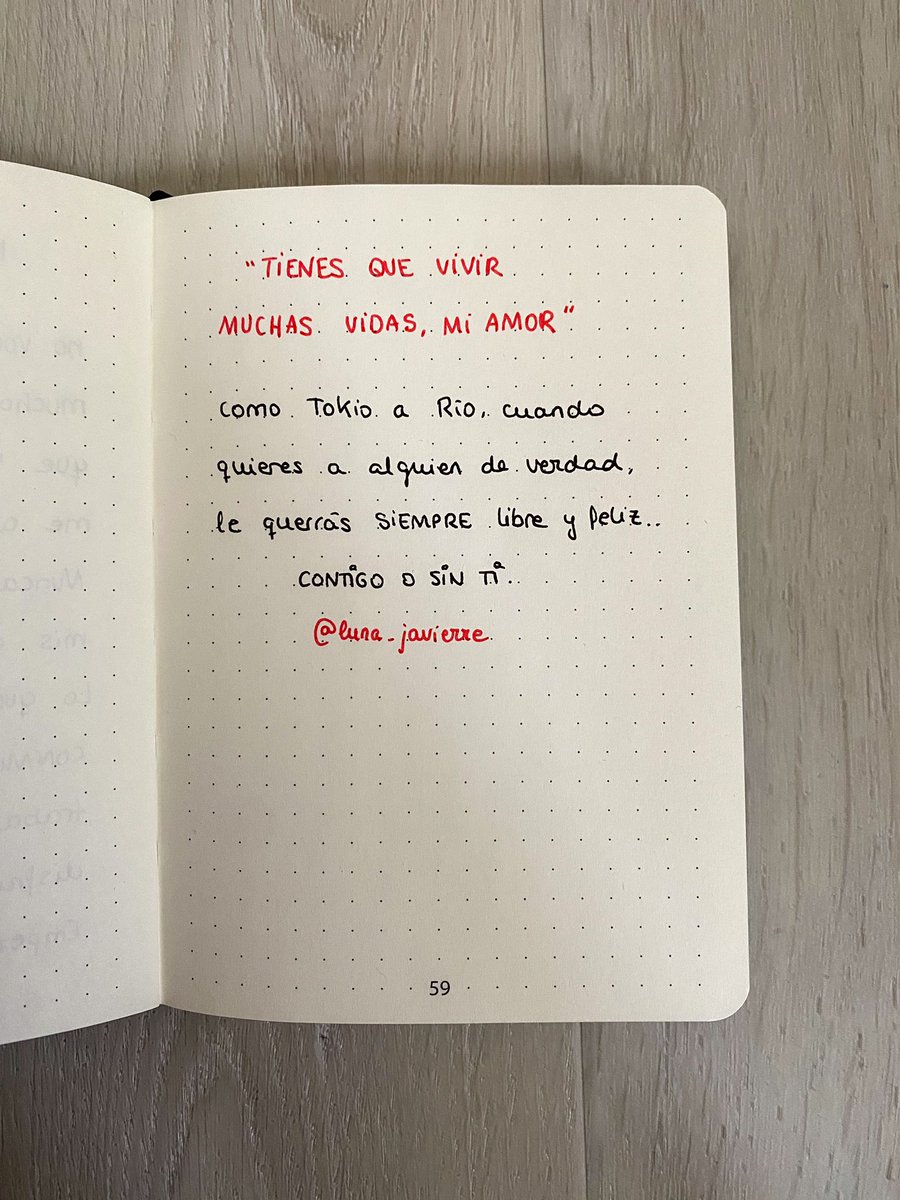 "TIENES QUE VIVIR
MUCHAS VIDAS, MI AMOR"
como Tokio a Río, cuando
quieres a alguien de verdad,
le querrás SIEMPRE libre y feliz..
CONTIGO O SIN TI.
@luna_javierre
59